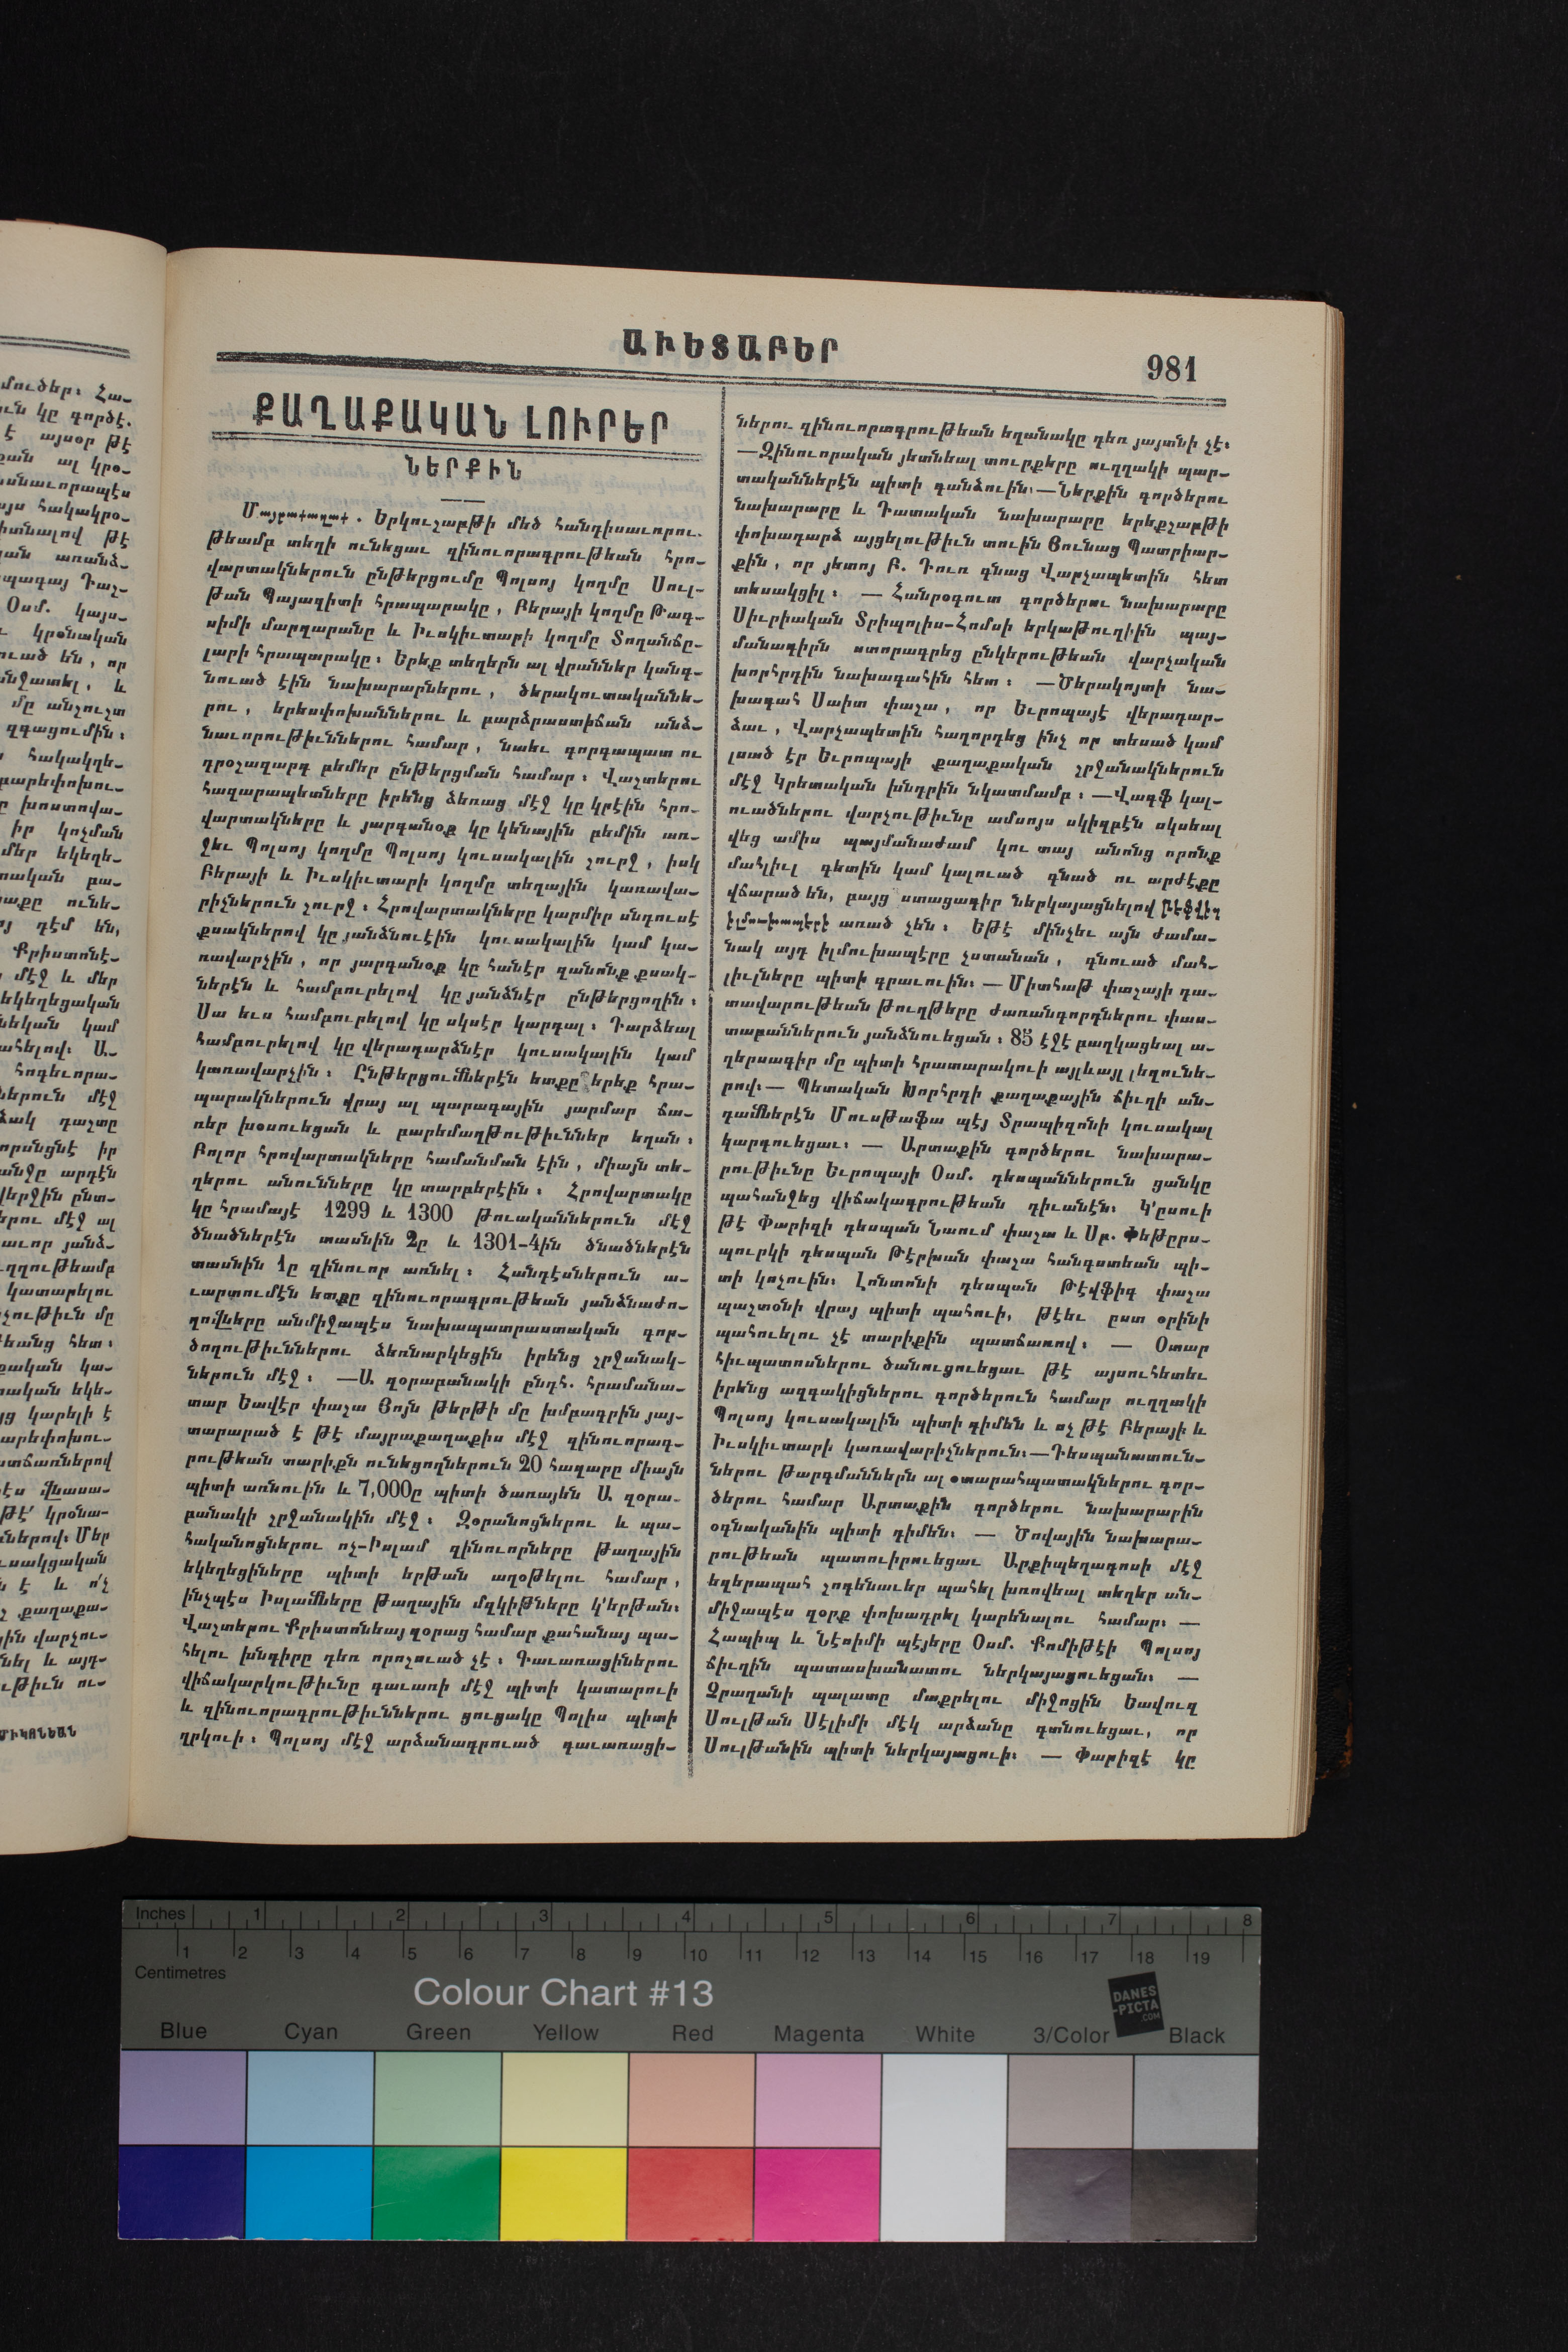 ԱՒԵՏԱԲԵՐ
981
ՔԱՂԱՔԱԿԱՆ ԼՈՒՐԵՐ
ՆԵՐՔԻՆ
Մայրաքաղաք. Երկուշաբթի մեծ հանդիսաւորու-
թեամբ տեղի ունեցաւ զինուորագրութեան հրո-
վարտակներուն ընթերցումը Պոլսոյ կողմը Սուլ-
թան Պայազիտի հրապարակը, Բերայի կողմը Թաղ-
սիմի մարզարանը և Իւսկիւտարի կողմը Տողանճը-
լարի հրապարակը։ Երեք տեղերն ալ վրաններ կանգ-
նուած էին նախարարներու, ծերակուտականնե-
րու, երեսփոխաններու և բարձրաստիճան անձ-
նաւորութիւններու համար, նաեւ գորգապատ ու
դրօշազարդ բեմեր ընթերցման համար։ Վաշտերու
հազարապետները իրենց ձեռաց մէջ կը կրէին հրո-
վարտակները և յարգանօք կը կենային բեմին առ-
ջեւ Պոլսոյ կողմը Պոլսոյ կուսակալին շուրջ, իսկ
Բերայի և Իւսկիւտարի կողմը տեղային կառավա-
րիչներուն շուրջ։ Հրովարտակները կարմիր սնդուսէ
քսակներով կը յանձնուէին կուսակալին կամ կա-
ռավարչին, որ յարգանօք կը հանէր զանոնք քսակ-
ներէն և համբուրելով կը յանձնէր ընթերցողին։
Սա եւս համբուրելով կը սկսէր կարդալ։ Դարձեալ
համբուրելով կը վերադարձնէր կուսակալին կամ
կառավարչին։ Ընթերցումներէն ետքը երեք հրա-
պարակներուն վրայ ալ պարագային յարմար ճա-
ռեր խօսուեցան և բարեմաղթութիւններ եղան։
Բոլոր հրովարտակները համանման էին, միայն տե-
ղերու անունները կը տարբերէին։ Հրովարտակը
կը հրամայէ 1299 և 1300 թուականներուն մէջ
ծնածներէն տասնին 2ը և 1301-4ին ծնածներէն
տասնին 1ը զինուոր առնել։ Հանդէսներուն ա-
ւարտումէն ետքը զինուորագրութեան յանձնաժո-
ղովները անմիջապէս նախապատրաստական գոր-
ծողութիւններու ձեռնարկեցին իրենց շրջանակ-
ներուն մէջ։ —Ա. զօրաբանակի ընդհ. հրամանա-
տար Եավէր փաշա Յոյն թերթի մը խմբագրին յայ-
տարարած է թէ մայրաքաղաքիս մէջ զինուորագ-
րութեան տարիքն ունեցողներուն 20 հազարը միայն
պիտի առնուին և 7,000ը պիտի ծառայեն Ա. զօրա-
բանակի շրջանակին մէջ։ Զօրանոցներու և պա-
հականոցներու ոչ-Իսլամ զինուորները թաղային
եկեղեցիները պիտի երթան աղօթելու համար,
ինչպէս Իսլամները թաղային մզկիթները կ'երթան։
Վաշտերու Քրիստոնեայ զօրաց համար քահանայ պա-
հելու խնդիրը դեռ որոշուած չէ։ Գաւառացիներու
վիճակարկութիւնը գաւառի մէջ պիտի կատարուի
և զինուորագրութիւններու ցուցակը Պոլիս պիտի
ղրկուի։ Պոլսոյ մէջ արձանագրուած գաւառացի-
ներու զինուորագրութեան եղանակը դեռ յայտնի չէ։
—Զինուորական յետնեալ տուրքերը ուղղակի պար-
տականներէն պիտի գանձուին։ —Ներքին գործերու
նախարարը և Դատական նախարարը երեքշաբթի
փոխադարձ այցելութիւն տուին Յունաց Պատրիար-
քին, որ յետոյ Բ. Դուռ գնաց Վարչապետին հետ
տեսակցիլ։ — Հանրօգուտ գործերու նախարարը
Սիւրիական Տրիպոլիս-Հոմսի երկաթուղիին պայ-
մանագիրն ստորագրեց ընկերութեան վարչական
խորհրդին նախագահին հետ։ —Ծերակոյտի նա-
խագահ Սաիտ փաշա, որ Եւրոպայէ վերադար-
ձաւ, Վարչապետին հաղորդեց ինչ որ տեսած կամ
լսած էր Եւրոպայի քաղաքական շրջանակներուն
մէջ Կրետական խնդրին նկատմամբ։ —Վագֆ կալ-
ուածներու վարչութիւնը ամսոյս սկիզբէն սկսեալ
վեց ամիս պայմանաժամ կու տայ անոնց որոնք
մահլիւլ գետին կամ կալուած գնած ու արժէքը
վճարած են, բայց ստացագիր ներկայացնելով
առած չեն։ Եթէ մինչեւ այն ժամա-
նակ այդ իլմուխապէրը չստանան, գնուած մահ-
լիւլները պիտի գրաւուին։ — Միտհաթ փաշայի դա-
տավարութեան թուղթերը ժառանգորդներու փաս-
տաբաններուն յանձնուեցան։ 85 էջէ բաղկացեալ ա-
ղերսագիր մը պիտի հրատարակուի այլեւայլ լեզունե-
րով։— Պետական Խորհրդի քաղաքային ճիւղի ան-
դամներէն Մուսթաֆա պէյ Տրապիզոնի կուսակալ
կարգուեցաւ։ — Արտաքին գործերու նախարա-
րութիւնը Եւրոպայի Օսմ. դեսպաններուն ցանկը
պահանջեց վիճակագրութեան դիւանէն։ Կ'ըսուի
թէ Փարիզի դեսպան Նաում փաշա և Սբ. Փեթըրս-
պուրկի դեսպան Թէրխան փաշա հանգստեան պի-
տի կոչուին։ Լոնտոնի դեսպան Թէվֆիգ փաշա
պաշտօնի վրայ պիտի պահուի, թէեւ ըստ օրինի
պահուելու չէ տարիքին պատճառով։ — Օտար
հիւպատոսներու ծանուցուեցաւ թէ այսուհետեւ
իրենց ազգակիցներու գործերուն համար ուղղակի
Պոլսոյ կուսակալին պիտի դիմեն և ոչ թէ Բերայի և
Իւսկիւտարի կառավարիչներուն։—Դեսպանատուն-
ներու թարգմաններն ալ օտարահպատակներու գոր-
ծերու համար Արտաքին գործերու նախարարին
օգնականին պիտի դիմեն։ — Ծովային նախարա-
րութեան պատուիրուեցաւ Արքիպեղագոսի մէջ
եզերապահ շոգենաւեր պահել խռովեալ տեղեր ան-
միջապէս զօրք փոխադրել կարենալու համար։ —
Հապիպ և Նէսիմի պէյերը Օսմ. Քոմիթէի Պոլսոյ
ճիւղին պատասխանատու ներկայացուեցան։ —
Չրաղանի պալատը մաքրելու միջոցին Եավուզ
Սուլթան Սէլիմի մէկ արձանը գտնուեցաւ, որ
Սուլթանին պիտի ներկայացուի։ — Փարիզէ կը
Inches 1 2 3 4 5 6 7 8
1 2 3 4 5 6 7 8 9 10 11 12 13 14 15 16 17 18 19
Centimetres
Colour Chart #13
DANES
-PICTA
.COM
Blue Cyan Green Yellow Red Magenta White 3/Color Black